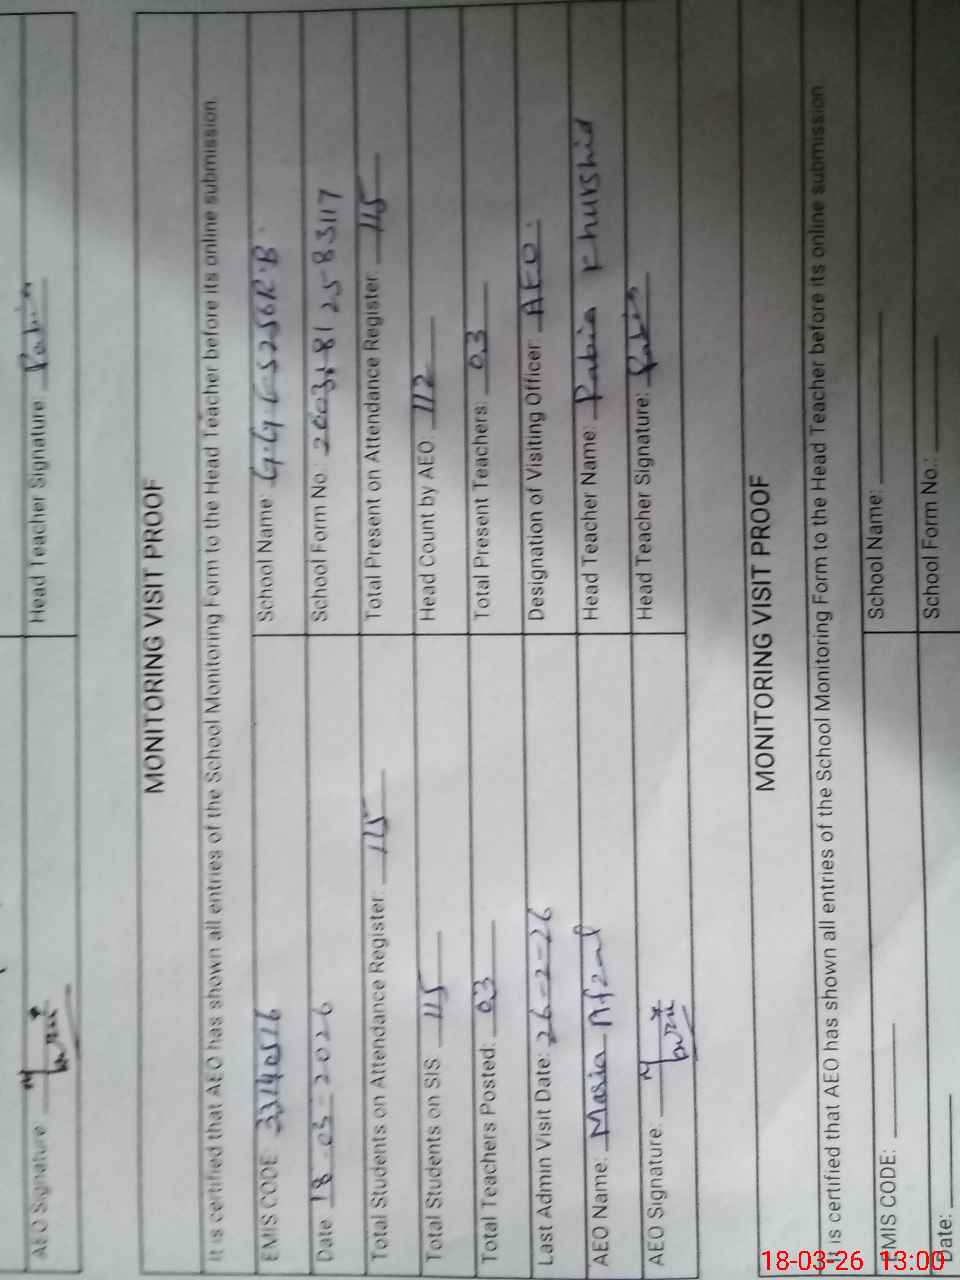 AEO Signature:
Head Teacher Signature: Rabia
MONITORING VISIT PROOF
It is certified that AEO has shown all entries of the School Monitoring Form to the Head Teacher before its online submission
EMIS CODE: 33140516 School Name: G.G.C.S 256 R.B.
Date 18-03-2026 School Form No.: 25-83117
Total Students on Attendance Register: 115 Total Present on Attendance Register: 115
Total Students on SIS: 115 Head Count by AEO: 112
Total Teachers Posted: 03 Total Present Teachers: 03
Last Admin Visit Date: 26-2-26 Designation of Visiting Officer: AEO.
AEO Name: Maria Afzal Head Teacher Name: Rabia Khurshid
AEO Signature: Head Teacher Signature: Rabia
MONITORING VISIT PROOF
It is certified that AEO has shown all entries of the School Monitoring Form to the Head Teacher before its online submission
EMIS CODE: School Name:
Date: School Form No.:
18-03-26 13:00